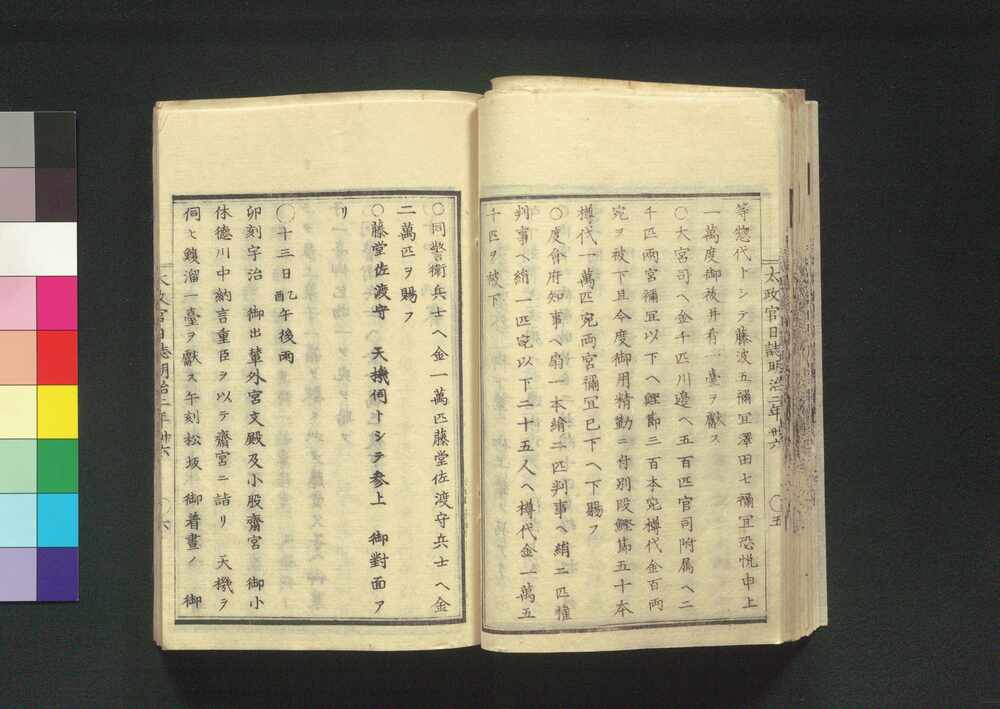 等惣代トシテ藤波五禰宜澤田七禰宜恐悦申上
一萬度御祓并肴一臺ヲ獻ス
○大宮司ヘ金千匹川邉ヘ五百匹官司附属ヘ二
千匹兩宮禰宜以下ヘ鰹節三百本宛樽代金百兩
宛ヲ被下且今度御用精勤ニ付別段鰹節五十本
樽代一萬匹宛兩宮禰宜已下ヘ下賜フ
○度會府知事ヘ扇一本絹二匹判事ヘ絹二匹權
判事ヘ絹一匹宛以下二十五人ヘ樽代金一萬五
千匹ヲ被下
太政官日誌明治二年 卅六
○五
○同警衛兵士ヘ金一萬匹藤堂佐渡守兵士ヘ金
二萬匹ヲ賜フ
○藤堂佐渡守 天機伺トシテ參上 御對面ア
リ
○十三日乙酉午後雨
卯刻宇治 御出輦外宮文殿及小股齋宮 御小
休德川中納言重臣ヲ以テ齋宮ニ詣リ 天機ヲ
伺ヒ鰻溜一臺ヲ獻ス午刻松坂 御着晝ノ 御
太政官日誌明治二年 卅六
○六